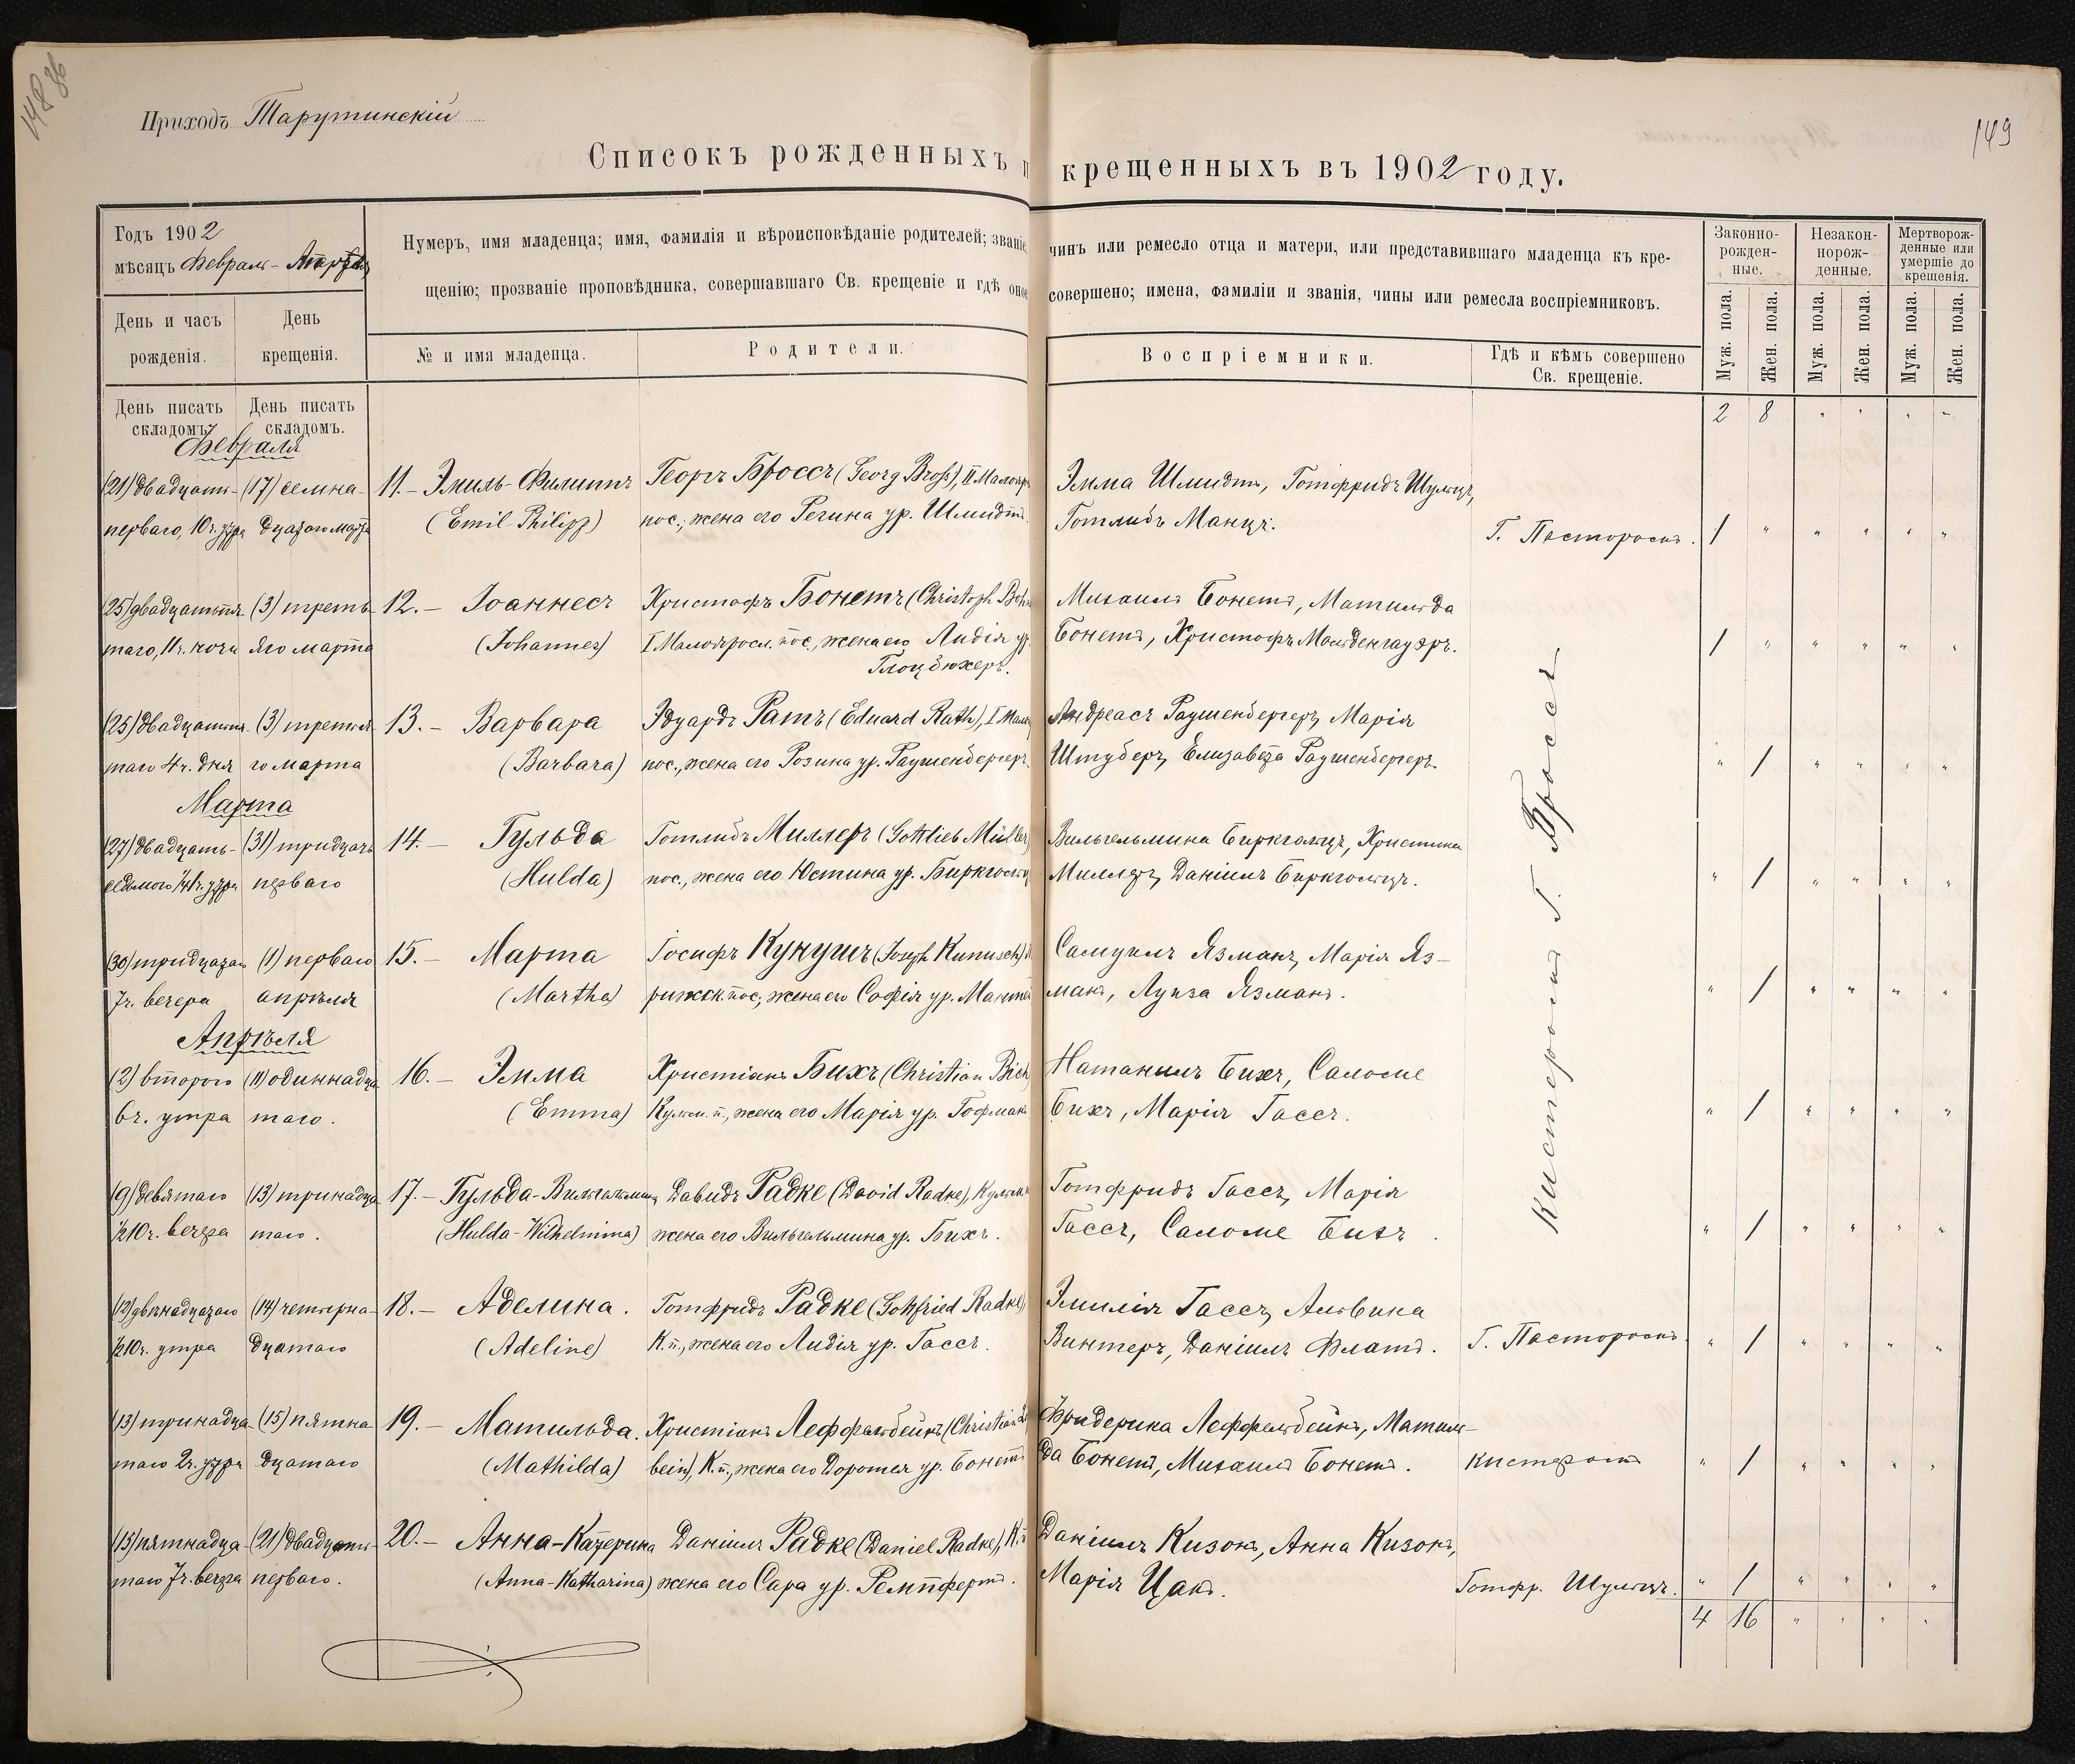 148
86
149
Приходъ Тарутинскій
Списокъ рожденныхъ и крещенныхъ въ 1902 году.
Годъ 1902
мѣсяцъ Февраль - Апрѣль
День и часъ рожденія.
День крещенія.
Нумеръ, имя младенца; имя, фамилія и вѣроисповѣданіе родителей; званіе, чинъ или ремесло отца и матери, или представившаго младенца къ кре-
щенію; прозваніе проповѣдника, совершавшаго Св. крещеніе и гдѣ оное совершено; имена, фамиліи и званія, чины или ремесла воспріемниковъ.
№ и имя младенца.
Родители.
Воспріемники.
Гдѣ и кѣмъ совершено
Св. крещеніе.
Законно-
рожден-
ные.
Незакон-
норож-
денные.
Мертворож-
денные или
умершіе до
крещенія.
Муж. пола. Жен. пола. Муж. пола. Жен. пола. Муж. пола. Жен. пола.
День писать складомъ.
День писать складомъ.
2 8 " " " "
Февраля
(21) двадцать- (17) семна- 11.- Эмиль-Филиппъ Георгъ Броссъ (Georg Broß), II Малояр Эмма Шмидтъ, Готфридъ Шульцъ,
перваго, 10 ч. утра дцатого марта (Emil-Philipp) пос., жена его Регина ур. Шмидтъ. Готлибъ Манцъ. Г. Пастороскъ. 1 " " " " "
(25) двадцатпя (3) треть- 12.- Іоаннесъ Христофъ Бонетъ (Christoph Boh Михаилъ Бонетъ, Матильда
таго, 11 ч. ночи яго марта (Johannes) I Малояросл. пос., жена его Лидія ур. Бонетъ, Христофъ Мольденгауэръ. 1 " " " " "
Глоцбюхеръ.
(25) двадцатпя (3) третья 13.- Варвара Эдуардъ Ратъ (Eduard Rath), I Мал Андреасъ Раушенбергеръ, Марія
таго 4 ч. дня го марта (Barbara) пос., жена его Розина ур. Раушенбергеръ. Штуберъ, Елизавета Раушенбергеръ. " 1 " " " "
Марта
(27) двадцать- (31) тридцать 14.- Гульда Готлибъ Миллеръ (Gottlieb Müller) Вильгельмина Биркгольцъ, Христина
седьмого утра перваго (Hulda) пос., жена его Юстина ур. Биркгольц Миллеръ, Даніилъ Биркгольцъ. " 1 " " " "
(30) тридцатаго (1) перваго 15.- Марта Іосифъ Кунушъ (Joseph Kunusch) Самуилъ Язманъ, Марія Яз-
7 ч. вечера апрѣля (Martha) рижск. пос., жена его Софія ур. манъ, Луиза Язманъ. " 1 " " " "
Апрѣля
(2) второго (11) одиннадца 16.- Эмма Христіанъ Бихъ (Christian Bich Натанилъ Бихъ, Саломе
6 ч. утра таго. (Emma) Кульм. п., жена его Марія ур. Гофманъ Бихъ, Марія Гассъ. " 1 " " " "
(9) девятаго (13) тринадца 17.- Гульда-Вильгельмина Давидъ Радке (David Radke), Кульм Готфридъ Гассъ, Марія
½10 ч. вечера таго. (Hulda-Wilhelmina) жена его Вильгельмина ур. Бихъ. Гассъ, Саломе Бихъ. " 1 " " " "
Кистеромъ Г. Броссъ
(12) двѣнадцатаго (14) четырна- 18.- Аделина. Готфридъ Радке (Gottfried Radke) Эмилія Гассъ, Альвина
½10 ч. утра дцатаго (Adeline) К. п., жена его Лидія ур. Гассъ. Винтеръ, Даніилъ Флатъ. Г. Пастороскъ. " 1 " " " "
(13) тринадца- (15) пятна- 19.- Матильда. Христіанъ Леффельбейнъ (Christian Фридерика Леффельбейнъ, Матиль-
таго 2 ч. утра дцатаго (Mathilda) bein), К. п., жена его Доротея ур. Бонетъ да Бонетъ, Михаилъ Бонетъ. Кистеромъ " 1 " " " "
(15) пятнадца- (21) двадцать- 20.- Анна-Катерина Даніилъ Радке (Daniel Radke), К. п. Даніилъ Кизонъ, Анна Кизонъ,
таго 7 ч. вечера перваго. (Anna-Katharina) жена его Сара ур. Ремпфертъ. Марія Цакъ. Готфр. Шульцъ. " 1 " " " "
4 16 " " " "